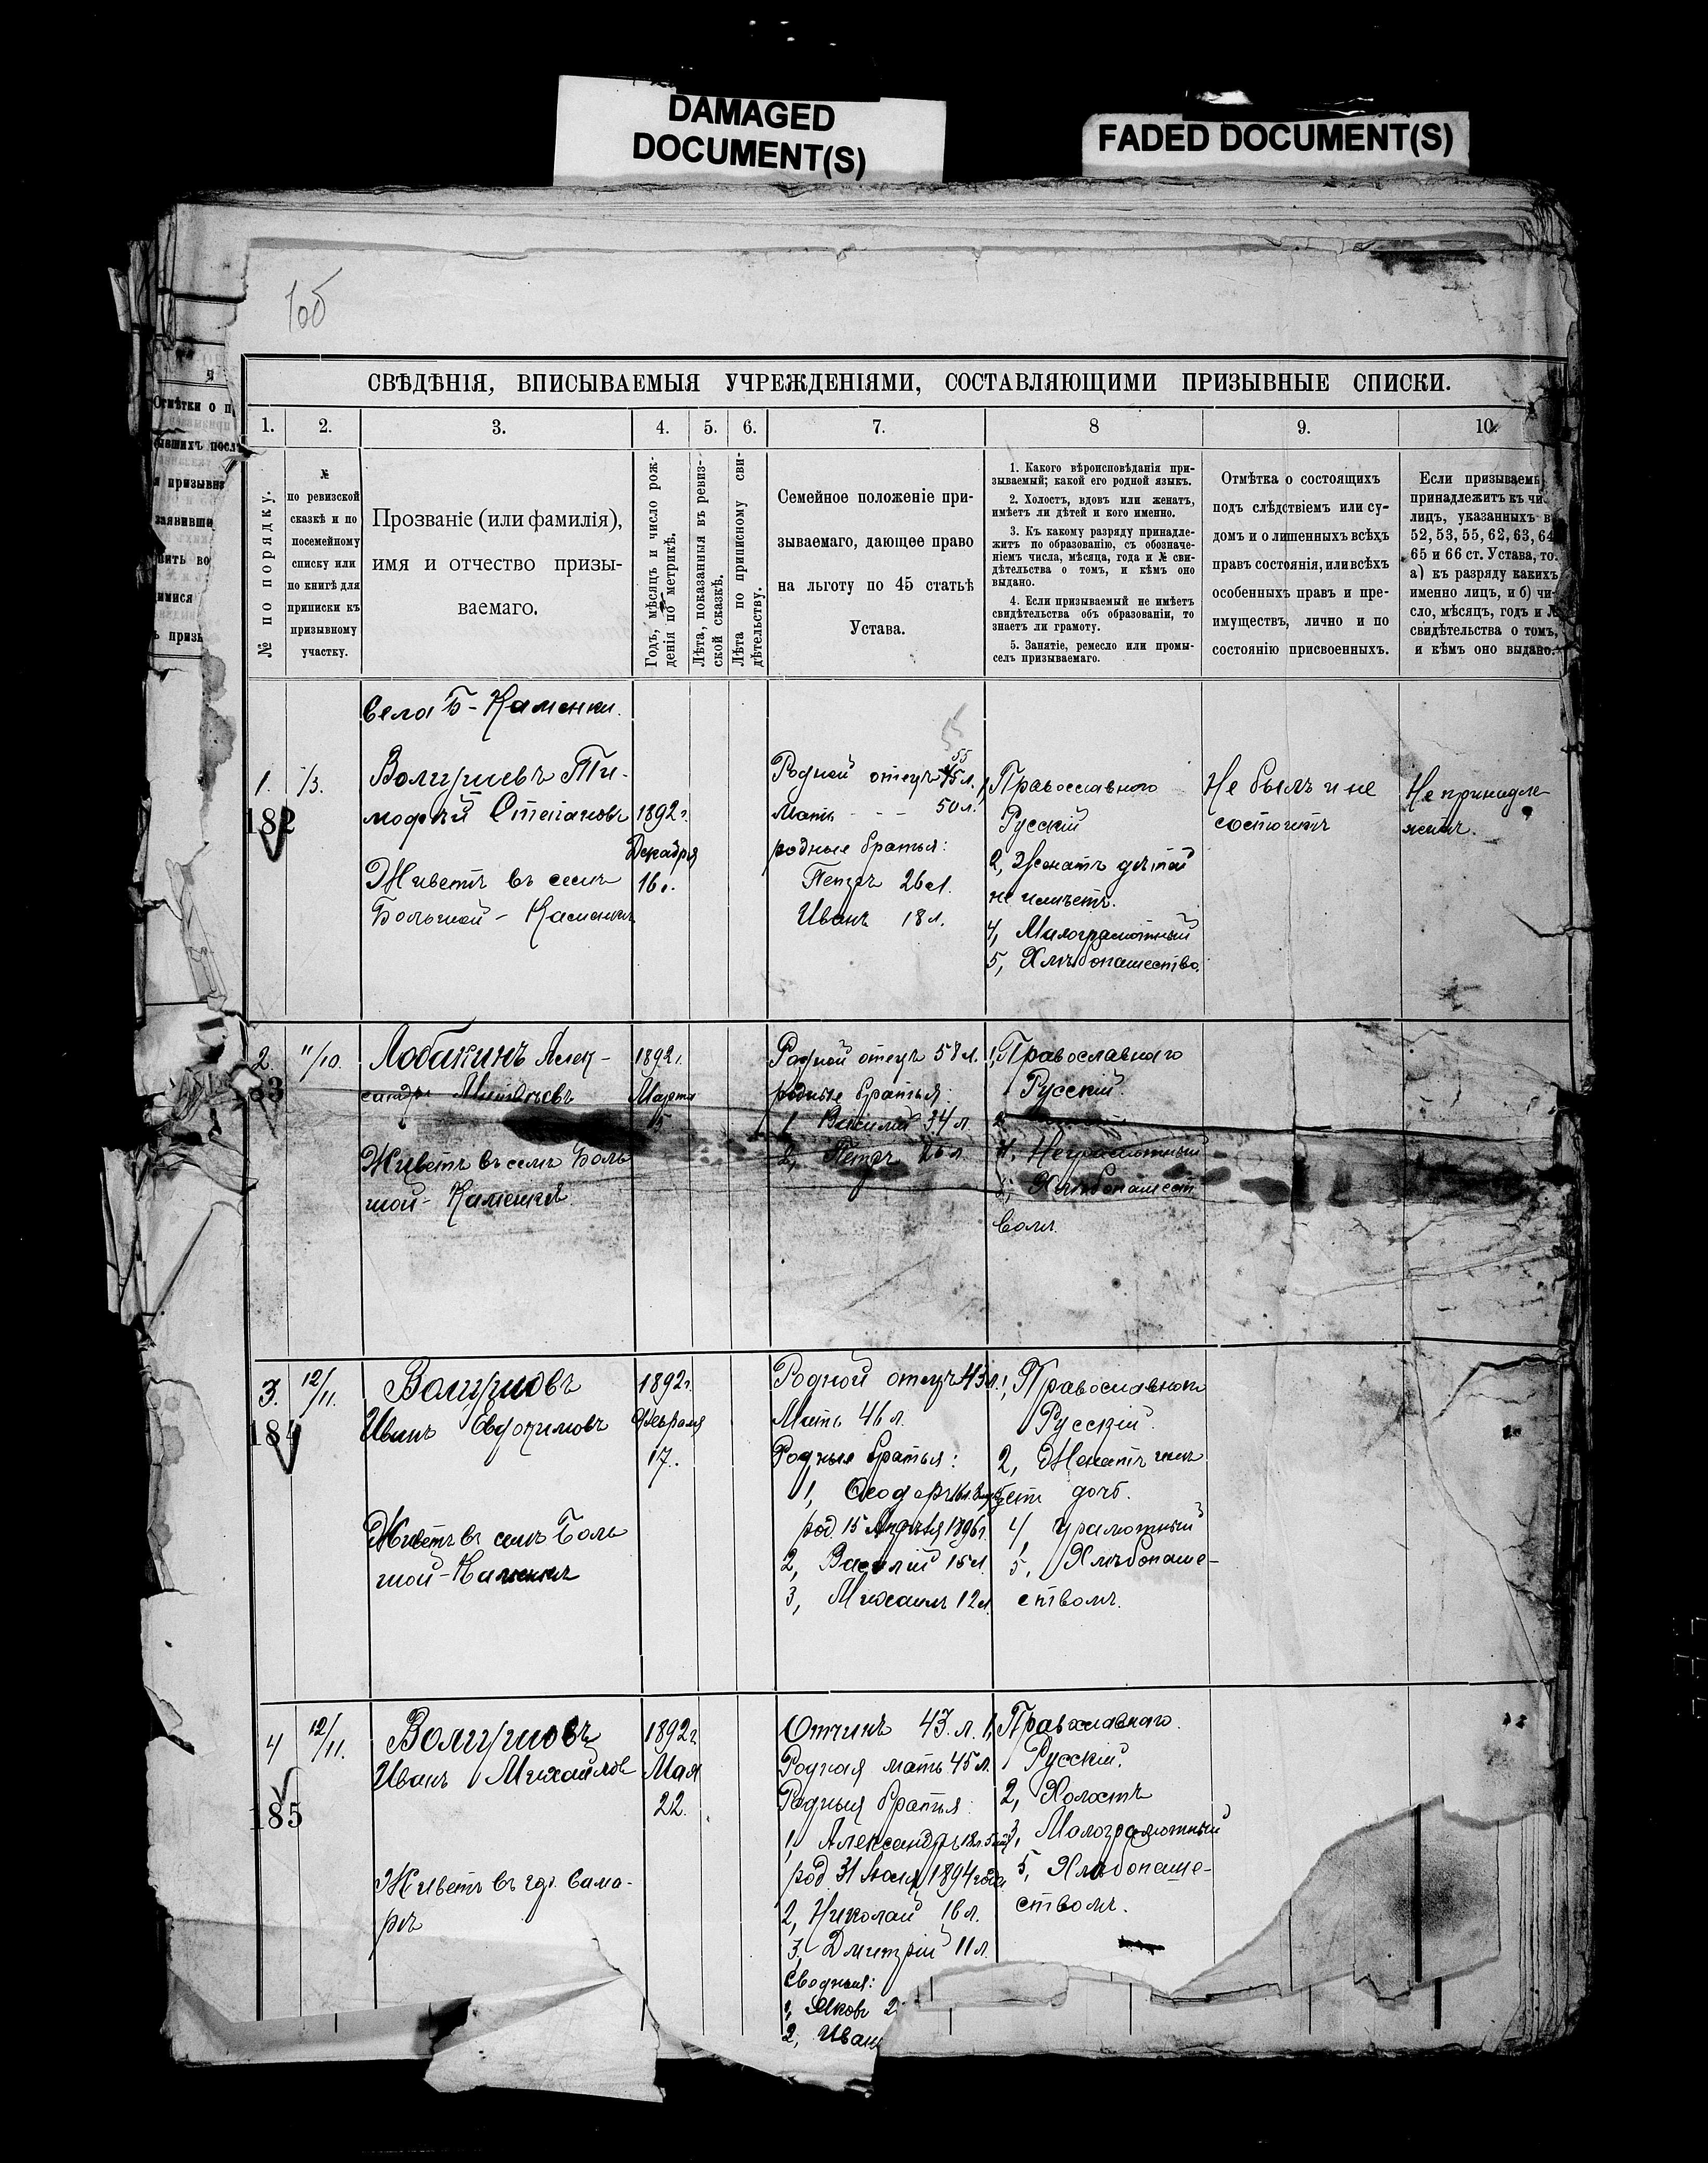 DAMAGED
DOCUMENT(S)
FADED DOCUMENT(S)
106
СВѢДѢНІЯ, ВПИСЫВАЕМЫЯ УЧРЕЖДЕНІЯМИ, СОСТАВЛЯЮЩИМИ ПРИЗЫВНЫЕ СПИСКИ.
1. 2. 3. 4. 5. 6. 7. 8 9. 10.
№ по порядку.
№
по ревизской
сказкѣ и по
посемейному
списку или
по книгѣ для
приписки къ
призывному
участку.
Прозваніе (или фамилія),
имя и отчество призы-
ваемаго.
Годъ, мѣсяцъ и число рож-
денія по метрикѣ.
Лѣта, показанныя въ ревиз-
ской сказкѣ.
Лѣта по приписному сви-
дѣтельству.
Семейное положеніе при-
зываемаго, дающее право
на льготу по 45 статьѣ
Устава.
1. Какого вѣроисповѣданія при-
зываемый; какой его родной языкъ.
2. Холостъ, вдовъ или женатъ,
имѣетъ ли дѣтей и кого именно.
3. Къ какому разряду принадле-
житъ по образованію, съ обозначе-
ніемъ числа, мѣсяца, года и № сви-
дѣтельства о томъ, и кѣмъ оно
выдано.
4. Если призываемый не имѣетъ
свидѣтельства объ образованіи, то
знаетъ ли грамоту.
5. Занятіе, ремесло или промы-
селъ призываемаго.
Отмѣтка о состоящихъ
подъ слѣдствіемъ или су-
домъ и о лишенныхъ всѣхъ
правъ состоянія, или всѣхъ
особенныхъ правъ и пре-
имуществъ, лично и по
состоянію присвоенныхъ.
Если призываем
принадлежитъ къ чи
лицъ, указанныхъ в
52, 53, 55, 62, 63, 64
65 и 66 ст. Устава, то:
а) къ разряду какихъ
именно лицъ, и б) чи-
сло, мѣсяцъ, годъ и №
свидѣтельства о томъ,
и кѣмъ оно выдано.
Села Б-Каменки.
1.
182
Тимофѣй Степановъ
Живетъ въ селѣ
Большой - Каменкѣ
1892 г.
Декабря
16.
Родной отецъ 55 л.
Мать - - 50 л.
родные братья:
Петръ 26 л.
Иванъ 18 л.
1, Православнаго
Русскій
2, Женатъ дѣтей
не имѣетъ.
4, Малограмотный
5, Хлѣбопашество.
Не былъ и не
состоитъ
Не принадле
житъ.
2. 11/10.
Лобакинъ Алек-
сандръ
Живетъ въ селѣ Боль
шой - Каменкѣ.
1892 г.
Марта
5
Родной отецъ 58 л.
родные братья:
1 Василій 34 л.
2, Петръ 26 л.
1, Православнаго
Русскій.
2
4, Неграмотный
5, Хлѣбопашест
вомъ.
3. 12/11.
184
Иванъ Евдокимовъ
Живетъ въ селѣ Боль
шой - Каменкѣ
1892 г.
Февраля
17.
Родной отецъ 43 л.
Мать 46 л.
Родные братья:
1, Ѳеодоръ
род. 15 1896 г.
2, Василій 15 л.
3, Михаилъ 12 л.
1, Православнаго
Русскій.
2, Женатъ имѣ
етъ дочь.
4, Грамотный
5, Хлѣбопаше-
ствомъ.
4 12/11.
185
Иванъ Михайловъ
Живетъ въ гор. Сама-
рѣ
1892 г.
Мая
22.
Отчимъ 43. л.
Родная мать 45 л.
Родныя братья:
1, Александръ
род. 31 Іюля 1894 года
2, Николай 16 л.
3, Дмитрій 11 л.
Сводныя:
1, Яковъ 2
2, Иван
1, Православнаго.
Русскій.
2, Холостъ
3, Малограмотный
5, Хлѣбопаше-
ствомъ.